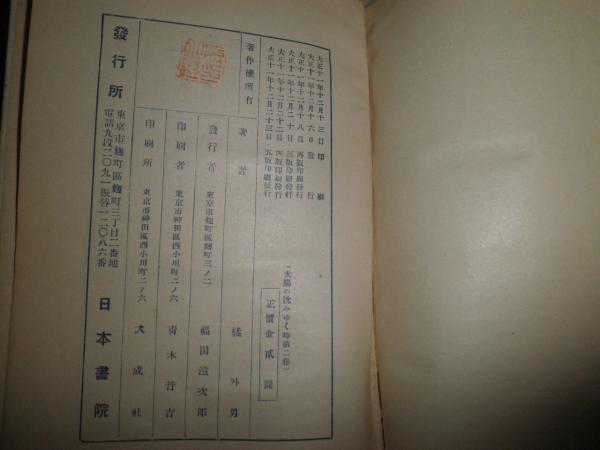 大正十一年十二月十三日印刷
大正十一年十二月十六日發行
大正十一年十二月十八日再版印刷發行
大正十一年十二月二十日三版印刷發行
大正十一年十二月二十二日四版印刷發行
大正十一年十二月二十三日五版印刷發行
(太陽の沈みゆく時第二卷)
正價金貳圓
著作權所有
著者 橘外男
發行者 東京市麹町區麹町三ノ二 福田滋次郎
印刷者 東京市神田區西小川町二ノ六 青木晋吉
印刷所 東京市神田區西小川町二ノ六 大成社
發行所 東京市麹町區麹町三丁目二番地
電話九段二〇九一振替一二〇八六番
日本書院